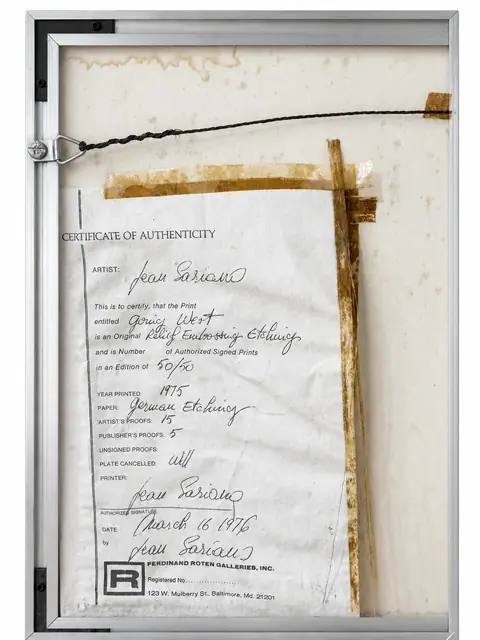 CERTIFICATE OF AUTHENTICITY
ARTIST: Jean Sariano
This is to certify, that the Print
entitled Going West
is an Original Relief Embossing Etching
and is Number of Authorized Signed Prints
in an Edition of 50/50
YEAR PRINTED: 1975
PAPER: German Etching
ARTIST'S PROOFS: 15
PUBLISHER'S PROOFS: 5
UNSIGNED PROOFS:
PLATE CANCELLED: will
PRINTER:
Jean Sariano
AUTHORIZED SIGNATURE
DATE: March 16 1976
by Jean Sariano
R
FERDINAND ROTEN GALLERIES, INC.
Registered No. ..................
123 W. Mulberry St., Baltimore, Md. 21201